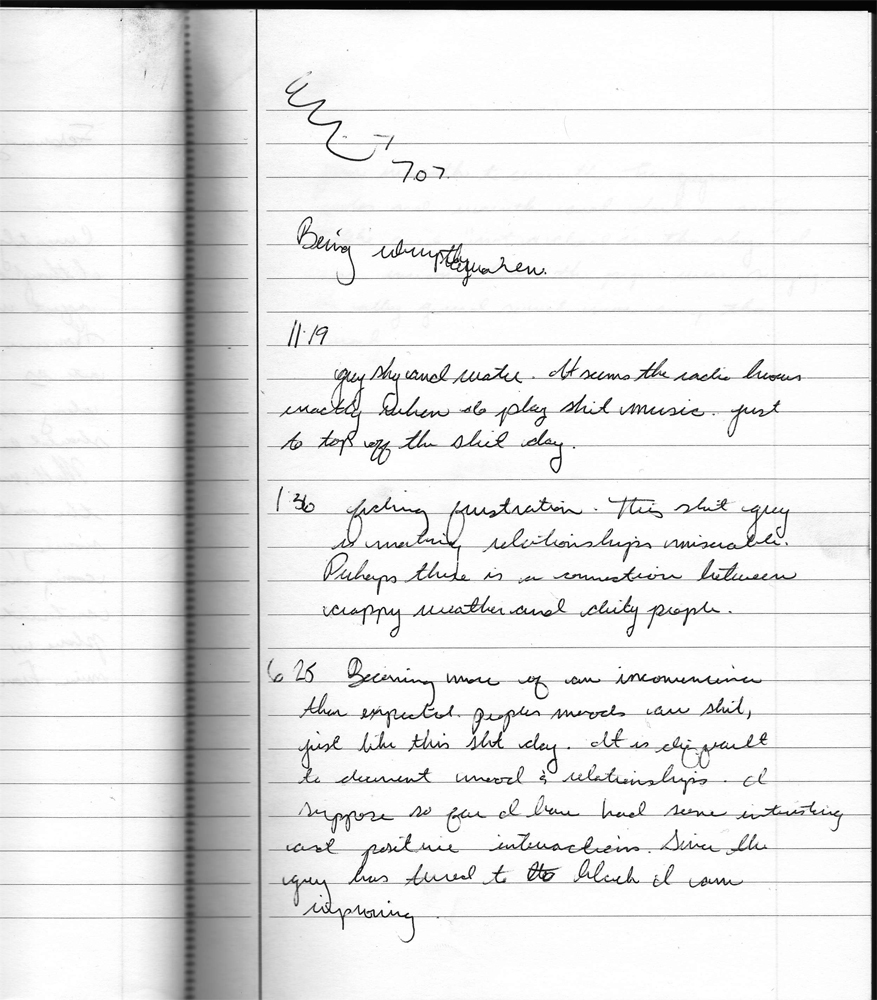 707.
Being abruptly awaken.
11:19
grey sky and water. It seems the radio knows
exactly when to play shit music. just
to top off the shit day.
1 36 fucking frustration. This shit grey
is making relationships miserable.
Perhaps there is a connection between
crappy weather and dirty people.
6 25 Becoming more of an inconvenience
than expected. peoples moods are shit,
just like this shit day. It is difficult
to document mood & relationships. I
suppose so far I have had some interesting
and positive interactions. Since the
grey has turned to black I am
improving.